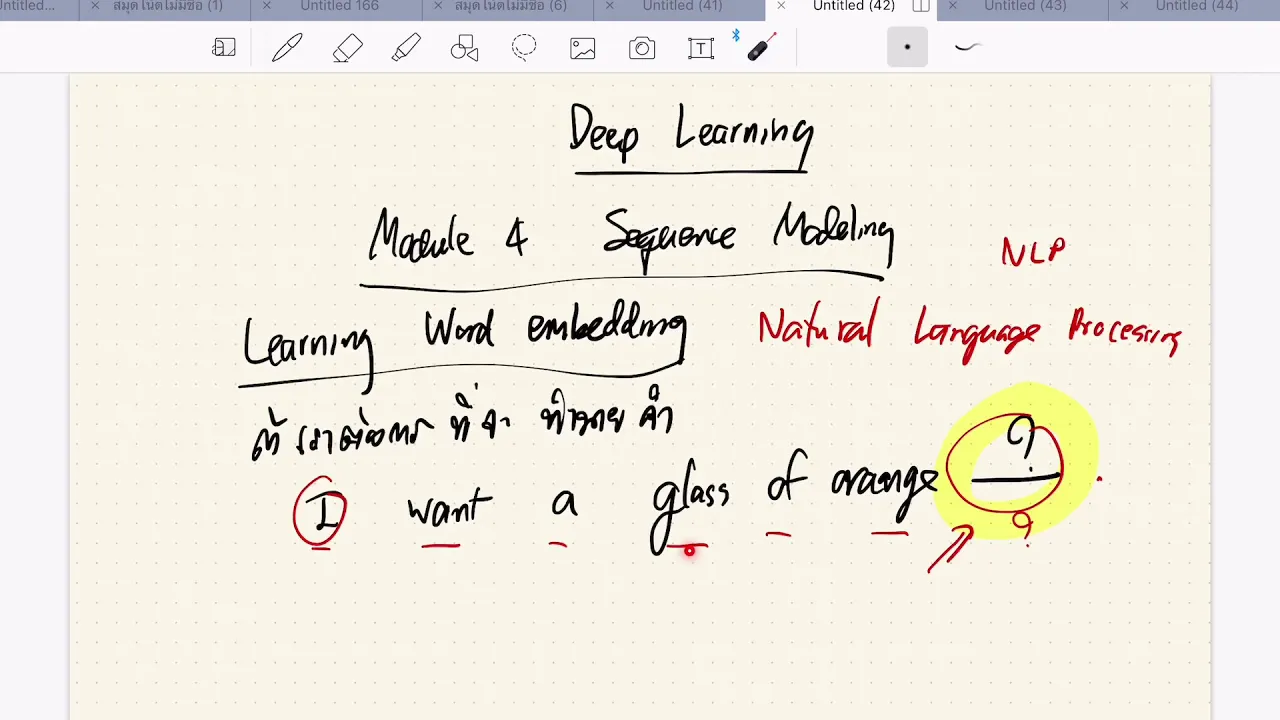 Untitled... สมุดโน้ตไม่มีชื่อ (1) Untitled 166 สมุดโน้ตไม่มีชื่อ (6) Untitled (41) Untitled (42) Untitled (43) Untitled (44)
Deep Learning
Module 4 Sequence Modeling
NLP
Learning Word embedding Natural Language Processing
ถ้า เราต้องการ ที่จะ ทำนาย คำ
I want a glass of orange ? .
?